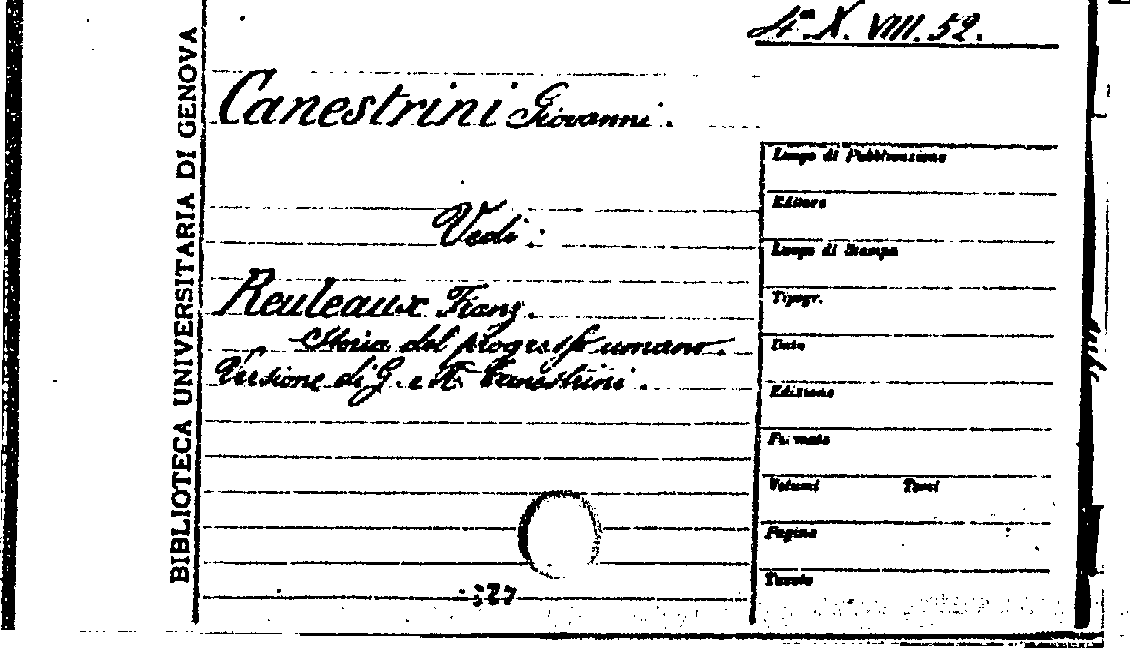 4ª X. VIII. 52.
BIBLIOTECA UNIVERSITARIA DI GENOVA
Canestrini Giovanni.
Vedi:
Reuleaux Franz.
Storia del progresso umano.
Versione di G. e R. Canestrini.
Luogo di Pubblicazione
Editore
Luogo di Stampa
Tipogr.
Data
Edizione
Formato
Volumi Tomi
Pagine
Tavole